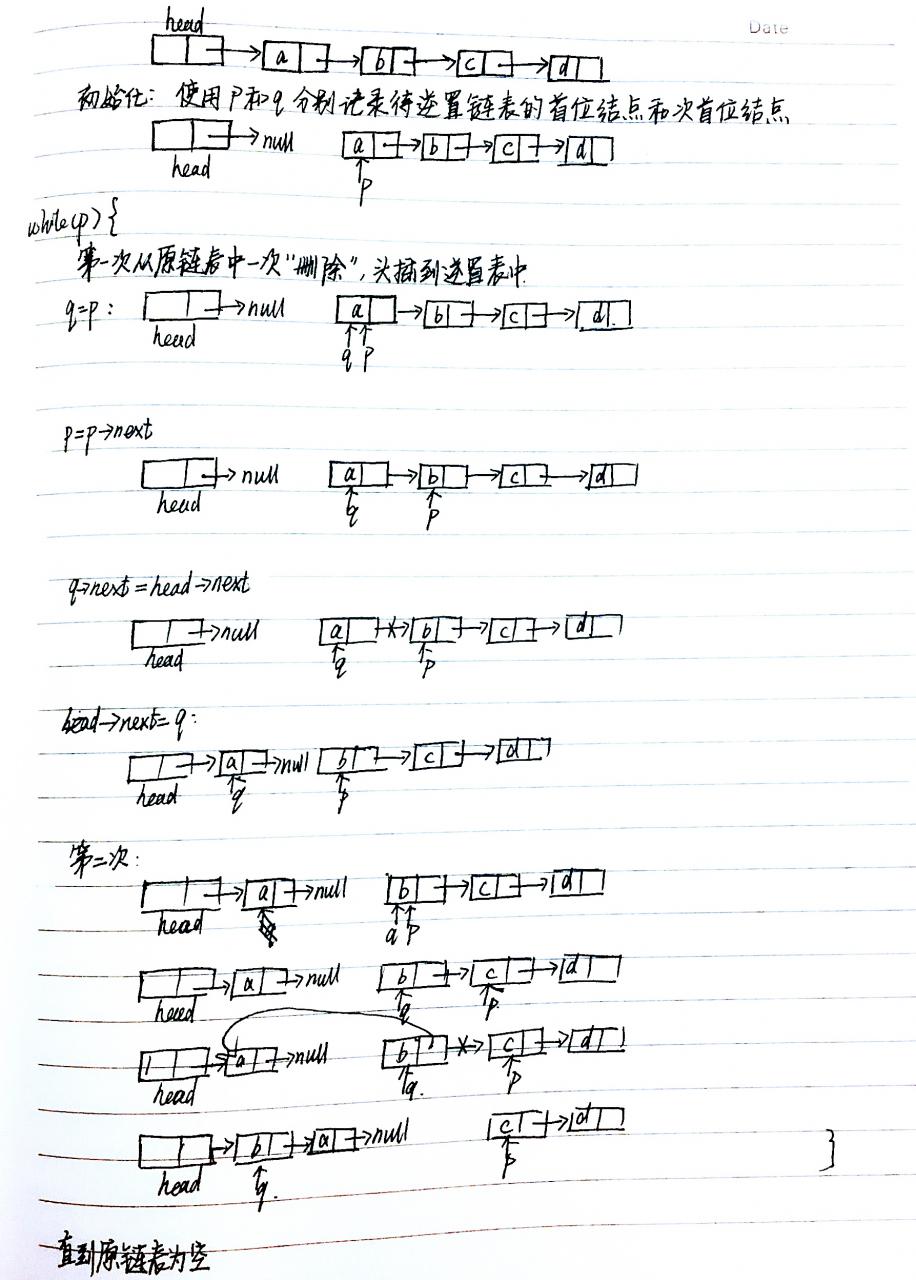 Date
head
a b c d
初始化: 使用p和q分别记录待逆置链表的首位结点和次首位结点
null a b c d
head p
while(p){
第一次从原链表中一次“删除”,头插到逆置表中
q=p: null a b c d
head q p
p=p→next
null a b c d
head q p
q→next=head→next
null a b c d
head q p
head→next=q:
a null b c d
head q p
第二次:
a null b c d
head q p
a null b c d
head q p
a null b c d
head q. p
b a null c d
head q. p
}
直到原链表为空